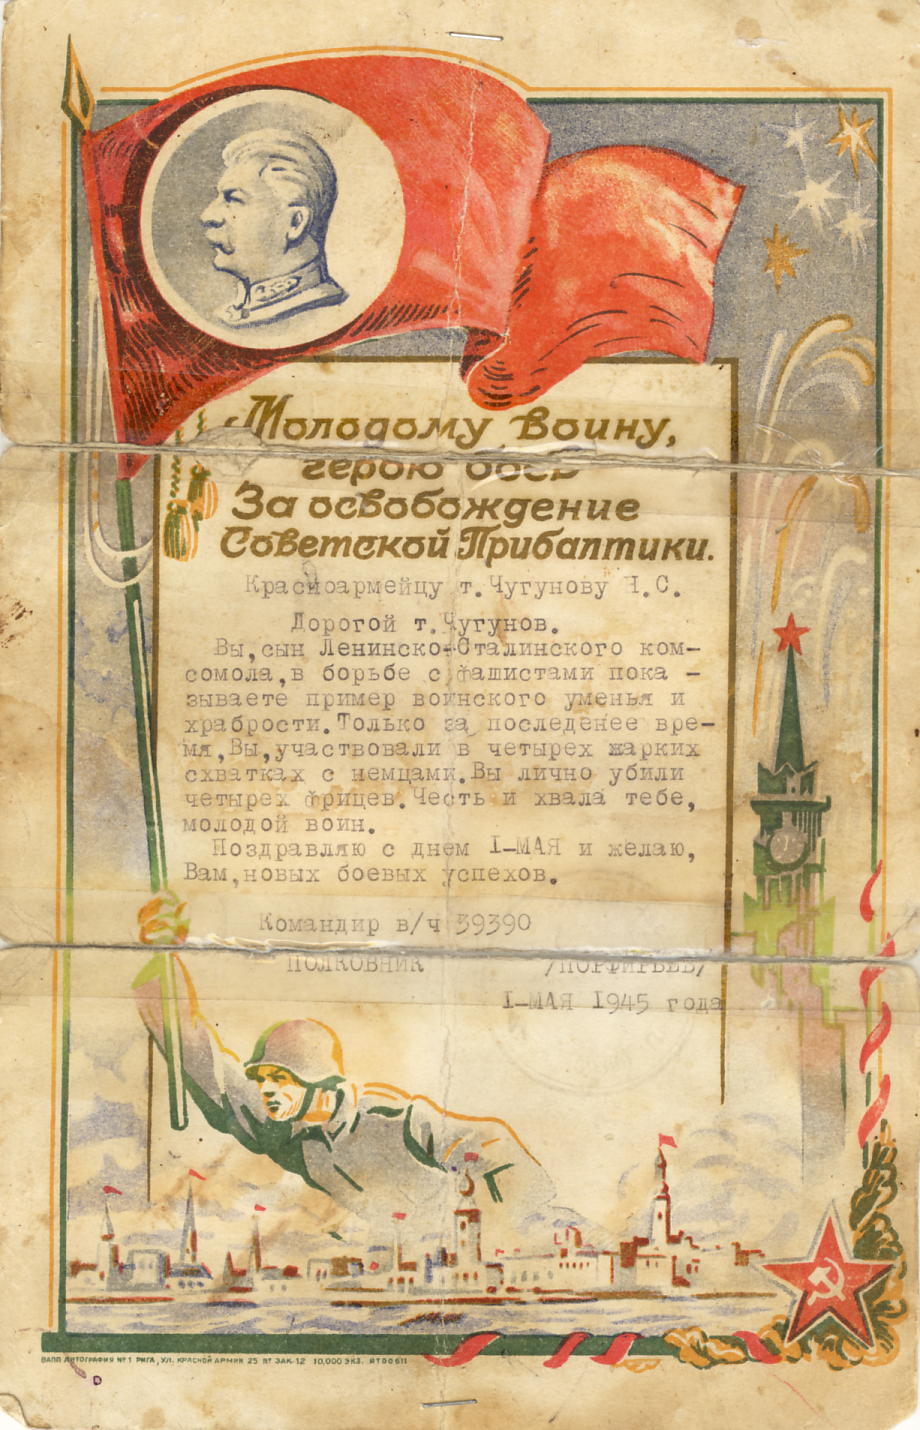 Молодому воину,
герою боев
За освобождение
Советской Прибалтики.
Красноармейцу т.Чугунову Ч.С.
Дорогой т.Чугунов.
Вы,сын Ленинско-Сталинского ком-
сомола,в борьбе с фашистами пока -
зываете пример воинского уменья и
храбрости.Только за последенее вре-
мя,Вы,участвовали в четырех жарких
схватках с немцами.Вы лично убили
четырех фрицев.Честь и хвала тебе,
молодой воин.
Поздравляю с днем I-МАЯ и желаю,
Вам,новых боевых успехов.
Командир в/ч 39390
ПОЛКОВНИК /ПОРФИРЬЕВ/
I-МАЯ 1945 года
ВАПП ЛИТОГРАФИЯ №1 РИГА, УЛ. КРАСНОЙ АРМИИ 25 ЗАК. 12 10,000 ЭКЗ. ЯТ00611